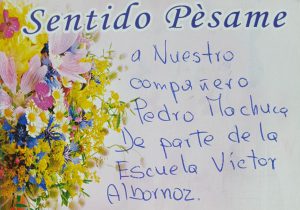 Sentido Pèsame
a Nuestro
compañero
Pedro Machuca
De parte de la
Escuela Víctor
Albornoz.